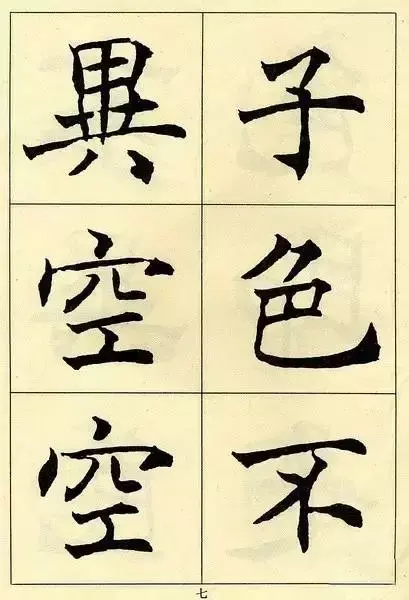 子色不
異空空
七